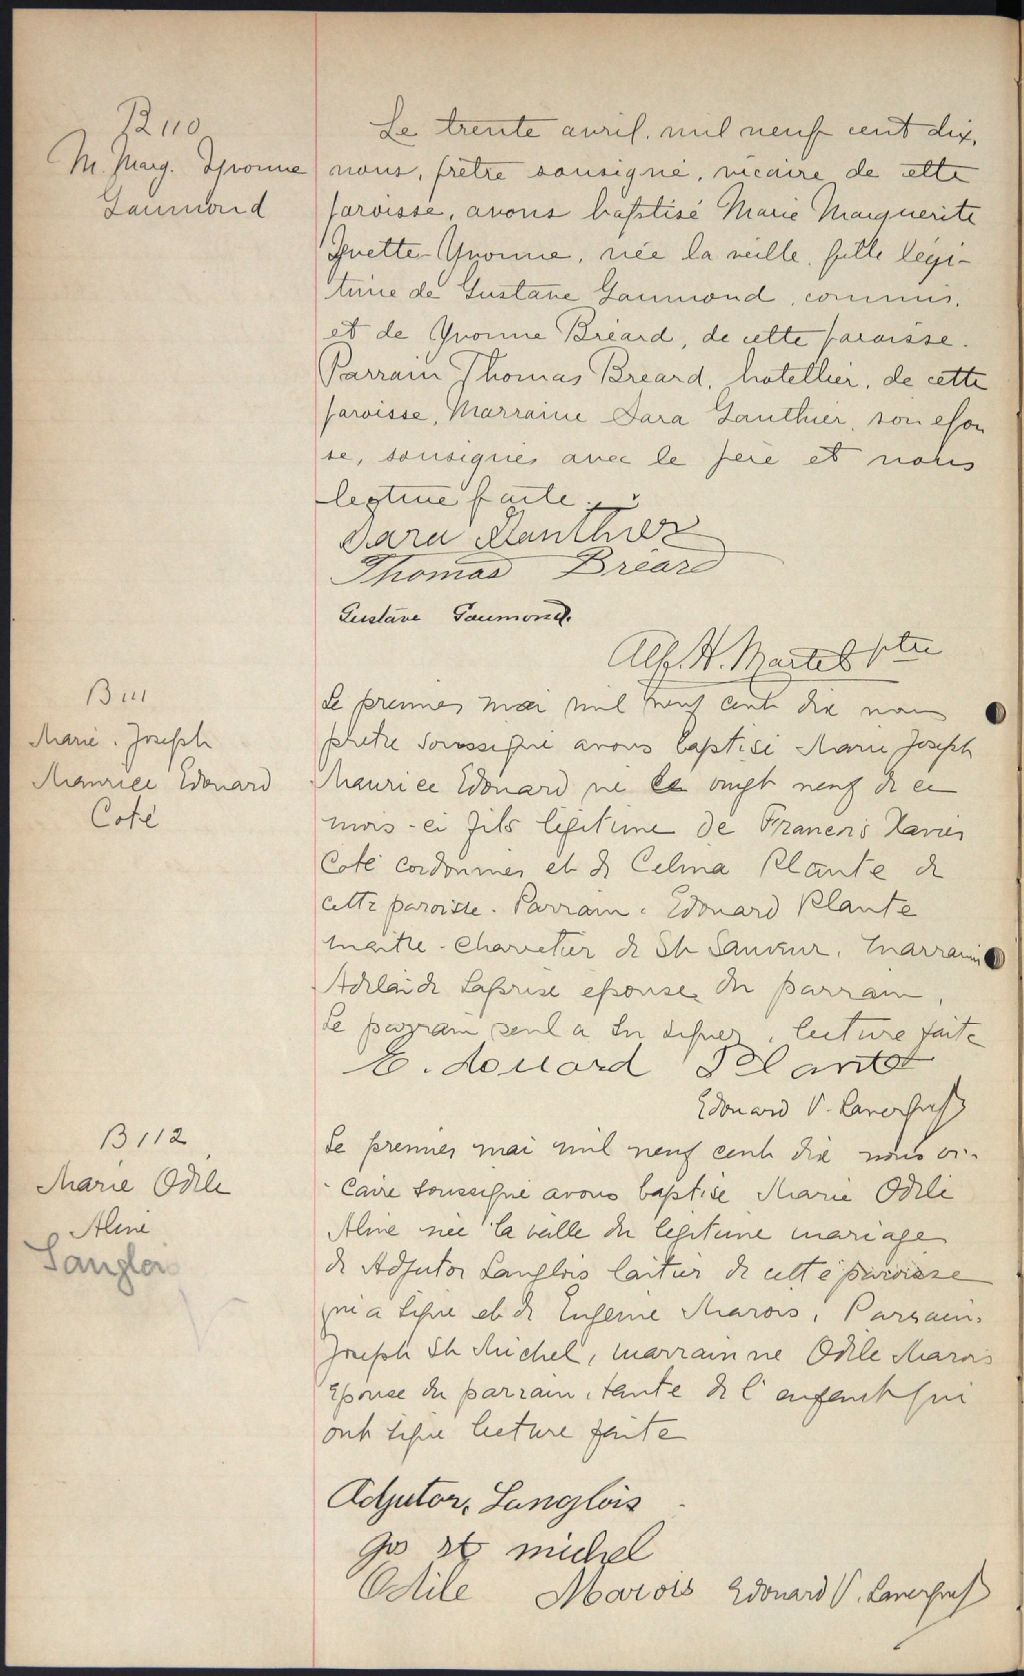 B 110
M. Marg. Yvonne
Gaumond
Le trente avril, mil neuf cent dix,
nous, prêtre sousigné, vicaire de cette
paroisse, avons baptisé Marie Marguerite
Yvette-Yvonne, née la veille, fille légi-
time de Gustave Gaumond, commis,
et de Yvonne Bréard, de cette paroisse.
Parrain Thomas Bréard, hotellier, de cette
paroisse, Marraine Sara Gauthier, son epou
se, sousignés avec le père et nous
lecture faite.
Sara Gauthier
Thomas Bréard
Gustave Gaumond.
Alf. H. Martel ptre
B 111
Marie. Joseph
Maurice Edouard
Coté
Le premier mai mil neuf cent dix nous
pretre soussigné avons baptisé Marie Joseph
Maurice Edouard né le vingt neuf de ce
mois-ci fils légitime de Francois Xavier
Coté cordonnier et de Celina Plante de
cette paroisse. Parrain. Edouard Plante
maitre-charretier de St Sauveur. Marraine
Adelaide Laprise épouse du parrain.
Le parrain seul a su signer, lecture faite
E. douard Plante
Edouard V. Lavergne ptr
B 112
Marie Odile
Aline
Langlois
Le premier mai mil neuf cent dix nous vi-
caire soussigné avons baptisé Marie Odile
Aline née la veille du légitime mariage
de Adjutor Langlois laitier de cette paroisse
qui a signé et de Eugenie Marois. Parrain.
Joseph St Michel, marrainne Odile Marois
épouse du parrain, tante de l'enfant qui
ont signé lecture faite
Adjutor, Langlois
Jos st michel
Odile Marois Edouard V. Lavergne ptr